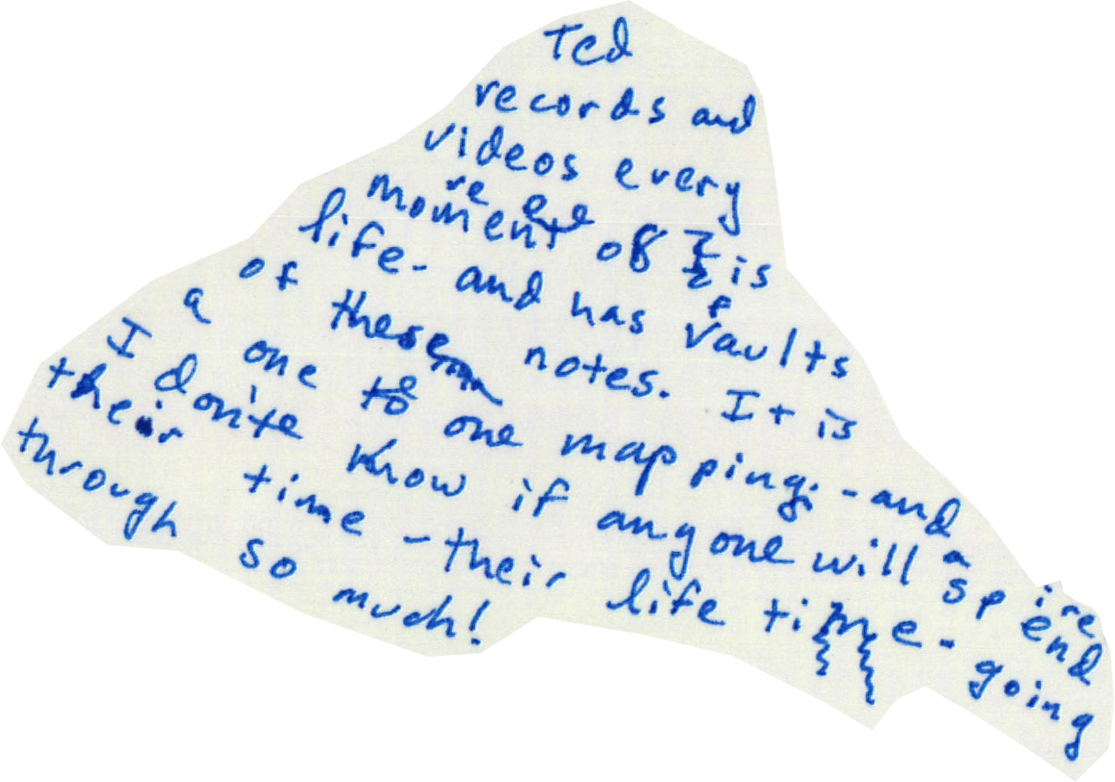 Ted
records and
videos every
moment of is
life - and has vaults
of these notes. It is
a one to one mapping - and
I don't know if anyone will spend
their time - their life time - going
through so much!